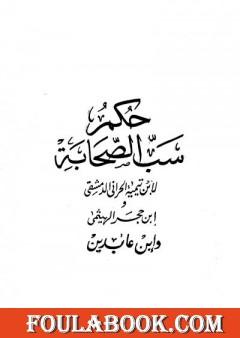 حكم
سب الصحابة
لابن تيمية الحراني الدمشقي
و
ابن حجر الهيثمي
وابن عابدين
FOULABOOK.COM